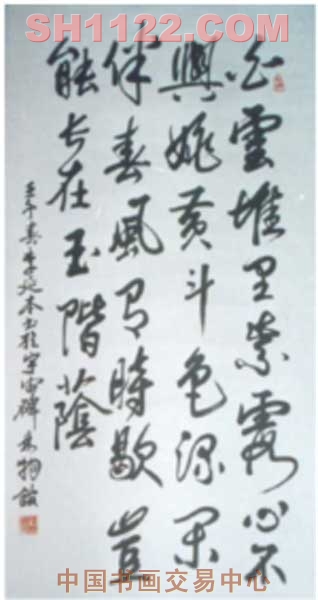 SH1122.COM
白雲堆里紫霞心不
與姚黄斗色深闲
伴春風有時歇豈
能长在玉階蔭
壬午
中国书画交易中心